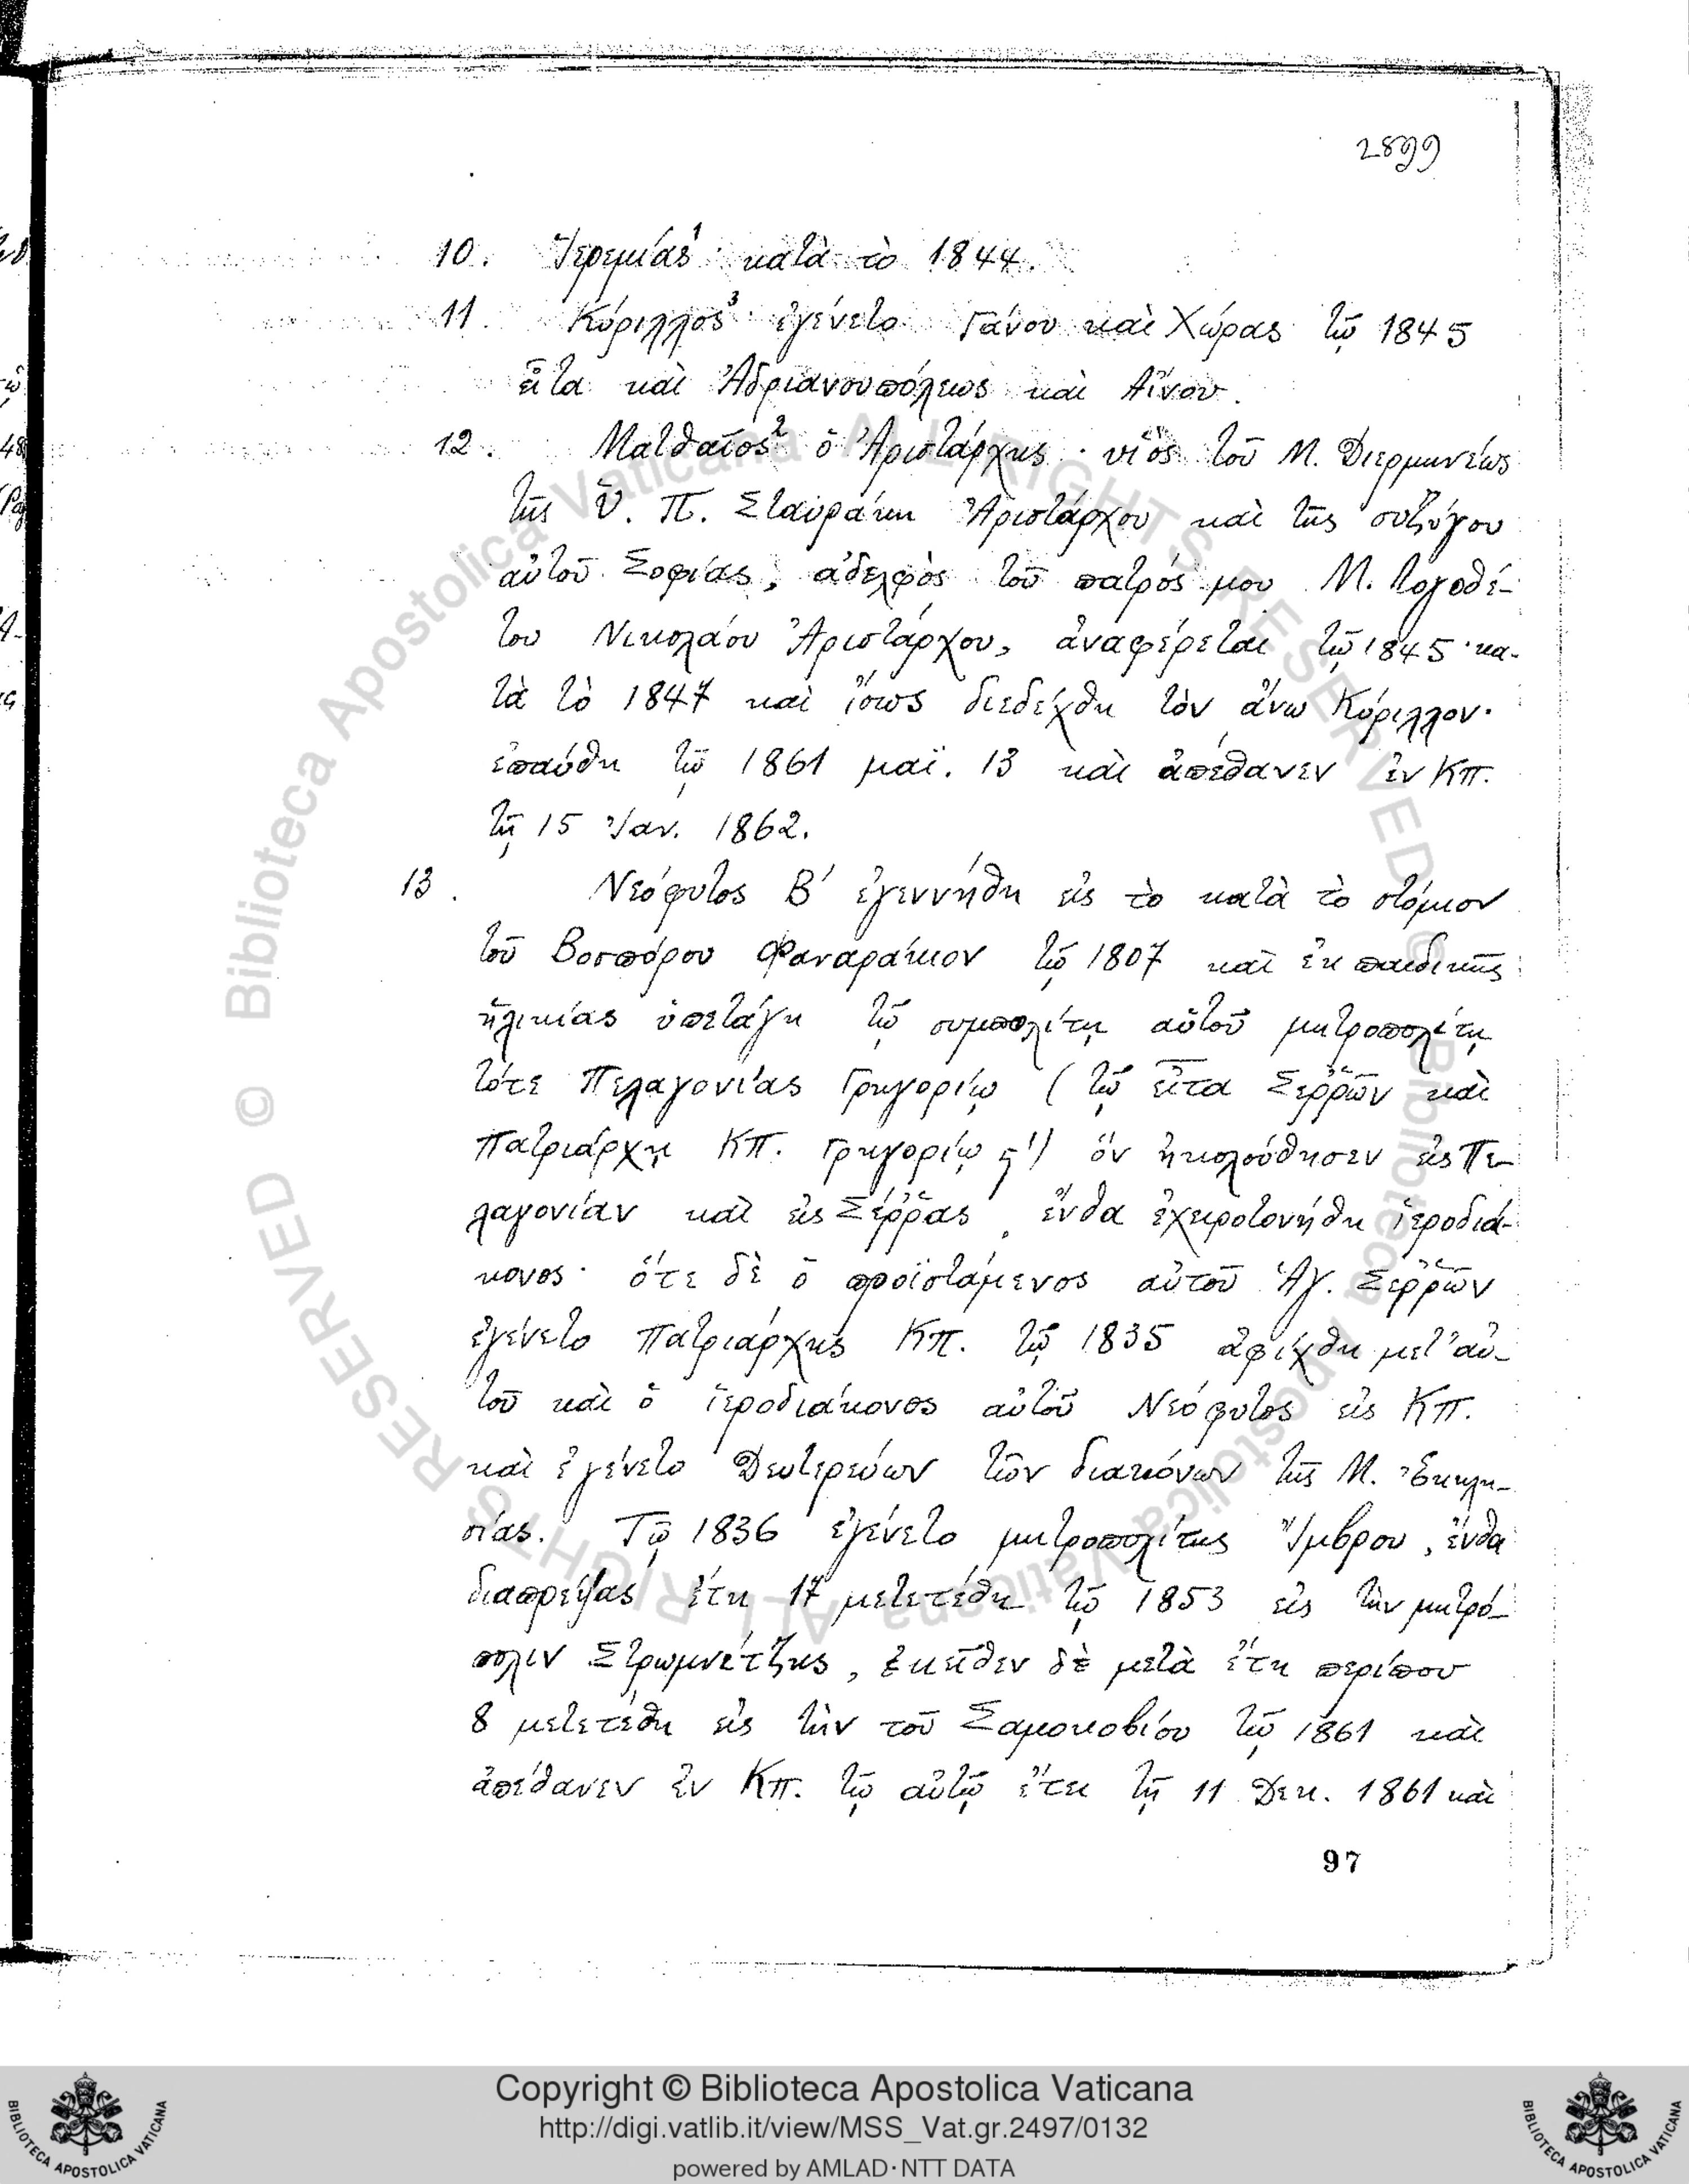 2899
10. Ἱερεμίας¹· κατὰ τὸ 1844.
11. Κύριλλος³· ἐγένετο Γάνου καὶ Χώρας τῷ 1845
εἶτα καὶ Ἀδριανουπόλεως καὶ Αἴνου.
12. Ματθαῖος² ὁ Ἀριστάρχης· υἱὸς τοῦ Μ. Διερμηνέως
τῆς Ὑ. Π. Σταυράκη Ἀριστάρχου καὶ τῆς συζύγου
αὐτοῦ Σοφίας, ἀδελφὸς τοῦ πατρός μου Μ. Λογοθέ-
του Νικολάου Ἀριστάρχου, ἀναφέρεται τῷ 1845· κα-
τὰ τὸ 1847 καὶ ἴσως διεδέχθη τὸν ἄνω Κύριλλον·
ἐπαύθη τῷ 1861 μαΐ. 13 καὶ ἀπέθανεν ἐν ΚΠ.
τῇ 15 Ἰαν. 1862.
13. Νεόφυτος Β′ ἐγεννήθη εἰς τὸ κατὰ τὸ στόμιον
τοῦ Βοσπόρου Φαναράκιον τῷ 1807 καὶ ἐκ παιδικῆς
ἡλικίας ὑπετάγη τῷ συμπολίτῃ αὐτοῦ μητροπολίτῃ
τότε Πελαγονίας Γρηγορίῳ (τῷ εἶτα Σερρῶν καὶ
Πατριάρχῃ ΚΠ. Γρηγορίῳ ϛ′) ὅν ἠκολούθησεν εἰς Πε-
λαγονίαν καὶ εἰς Σέρρας, ἔνθα ἐχειροτονήθη ἱεροδιά-
κονος· ὅτε δὲ ὁ προϊστάμενος αὐτοῦ Ἁγ. Σερρῶν
ἐγένετο Πατριάρχης ΚΠ. τῷ 1835 ἀφίχθη μετ' αὐ-
τοῦ καὶ ὁ ἱεροδιάκονος αὐτοῦ Νεόφυτος εἰς ΚΠ.
καὶ ἐγένετο Δευτερεύων τῶν διακόνων τῆς Μ. Ἐκκλη-
σίας. Τῷ 1836 ἐγένετο μητροπολίτης Ἴμβρου, ἔνθα
διαπρέψας ἔτη 17 μετετέθη τῷ 1853 εἰς τὴν μητρό-
πολιν Στρωμνίτζης, ἐκεῖθεν δὲ μετὰ ἔτη περίπου
8 μετετέθη εἰς τὴν τοῦ Σαμοκοβίου τῷ 1861 καὶ
ἀπέθανεν ἐν ΚΠ. τῷ αὐτῷ ἔτει τῇ 11 Δεκ. 1861 καὶ
97
© Biblioteca Apostolica Vaticana ALL RIGHTS RESERVED
Copyright © Biblioteca Apostolica Vaticana
http://digi.vatlib.it/view/MSS_Vat.gr.2497/0132
powered by AMLAD·NTT DATA
BIBLIOTECA APOSTOLICA VATICANA
BIBLIOTECA APOSTOLICA VATICANA